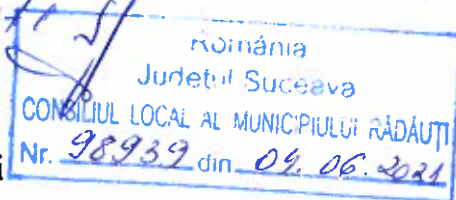 România
Județul Suceava
CONSILIUL LOCAL AL MUNICIPIULUI RĂDĂUȚI
Nr. 98939 din 04. 06. 2021
i